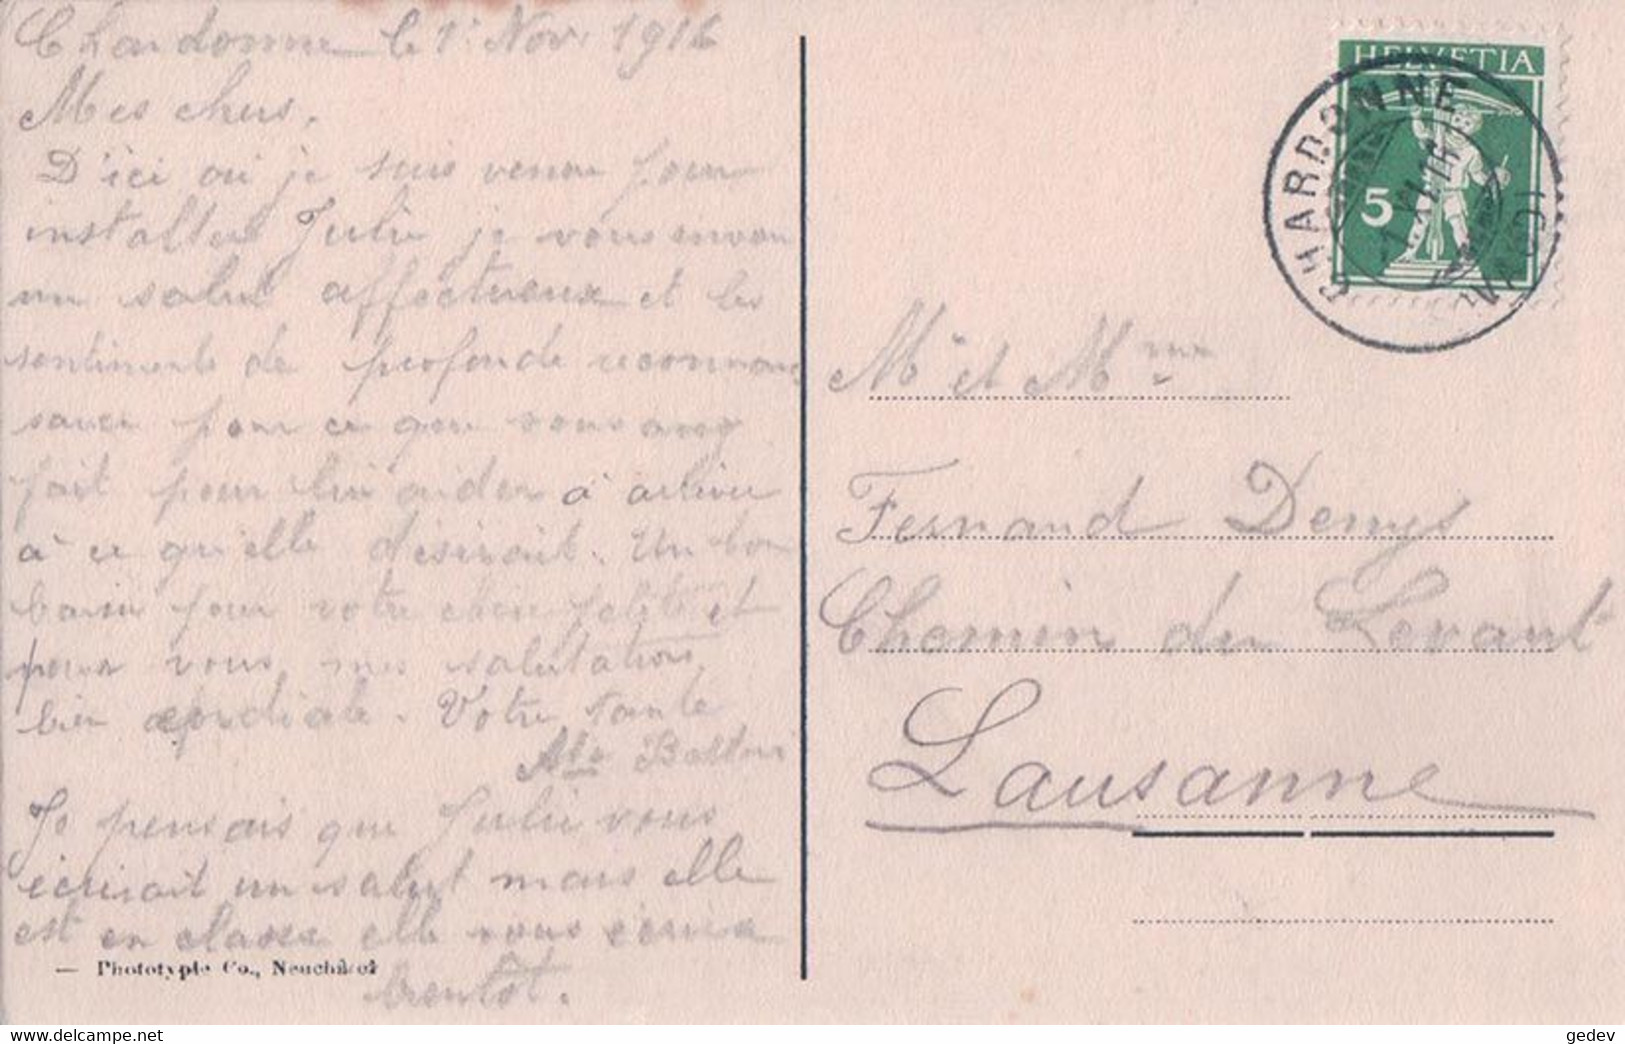 Chardonne le 1er Nov. 1916
Mes chers.
D'ici où je suis venue pour
installer Julie je vous envoie
un salut affectueux et les
sentiments de profonde reconnais
sance pour ce que vous avez
fait pour lui aider à arriver
à ce qu'elle désirait. Un bon
baiser pour votre chère petite et
pour vous, mes salutations
bien cordiale. Votre tante
Je pensais que Julie vous
écrirait un salut mais elle
est en classe elle vous écrira
bientôt.
— Phototypie Co., Neuchâtel
HELVETIA
5
CHARDONNE
(VAUD)
Mr et Mme
Fernand Denys
Chemin du Levant
Lausanne
gedev